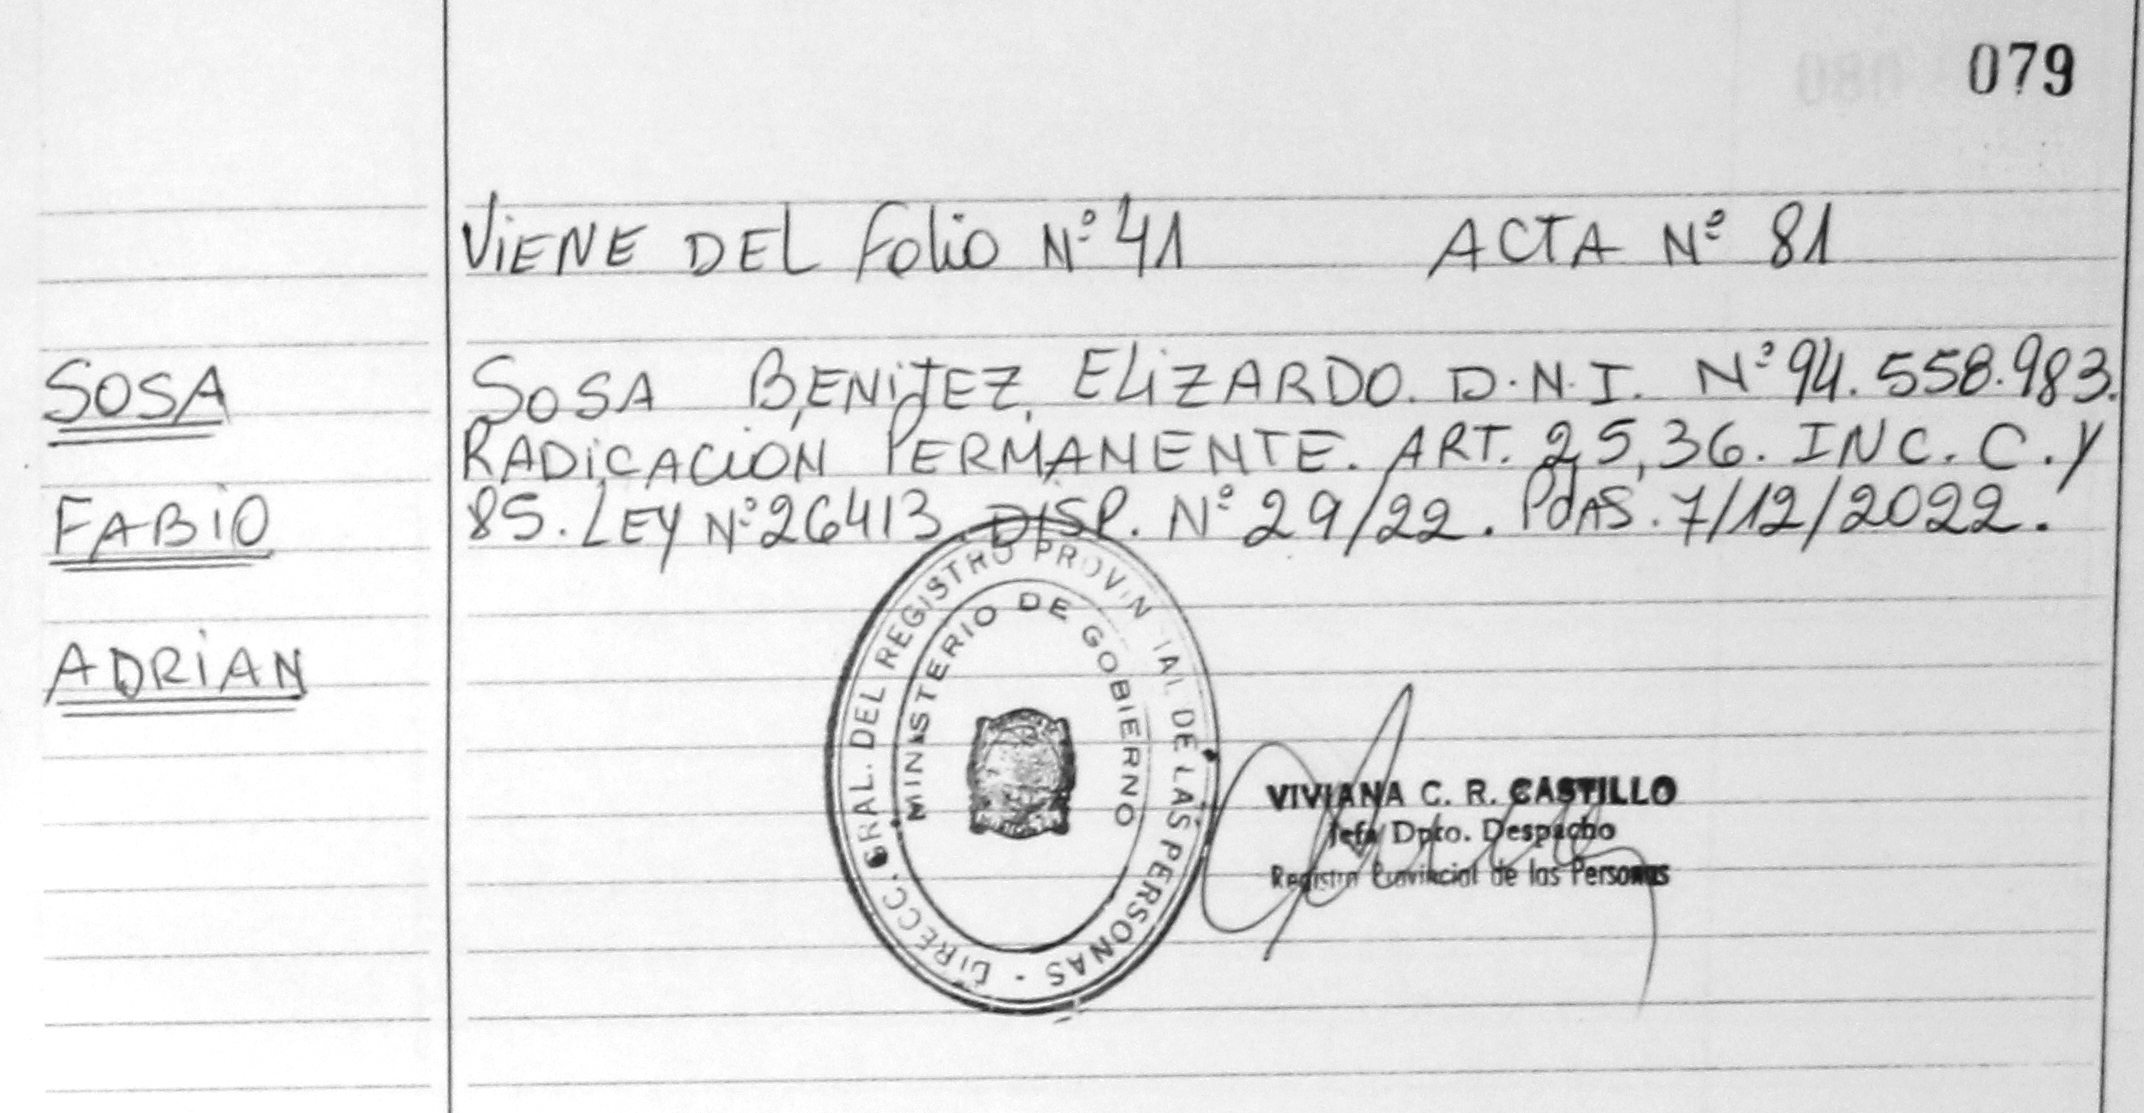 079
VIENE DEL FOLIO Nº 41 ACTA Nº 81
SOSA
FABIO
ADRIAN
SOSA BENITEZ, ELIZARDO. D.N.I. Nº 94.558.983.
RADICACION PERMANENTE. ART. 25,36. INC. C. Y
85. LEY Nº 26413. DISP. Nº 29/22. PdAS. 7/12/2022.
DIRECC. GRAL. DEL REGISTRO PROVINCIAL DE LAS PERSONAS -
MINISTERIO DE GOBIERNO
VIVIANA C. R. CASTILLO
Jefa Dpto. Despacho
Registro Provincial de las Personas